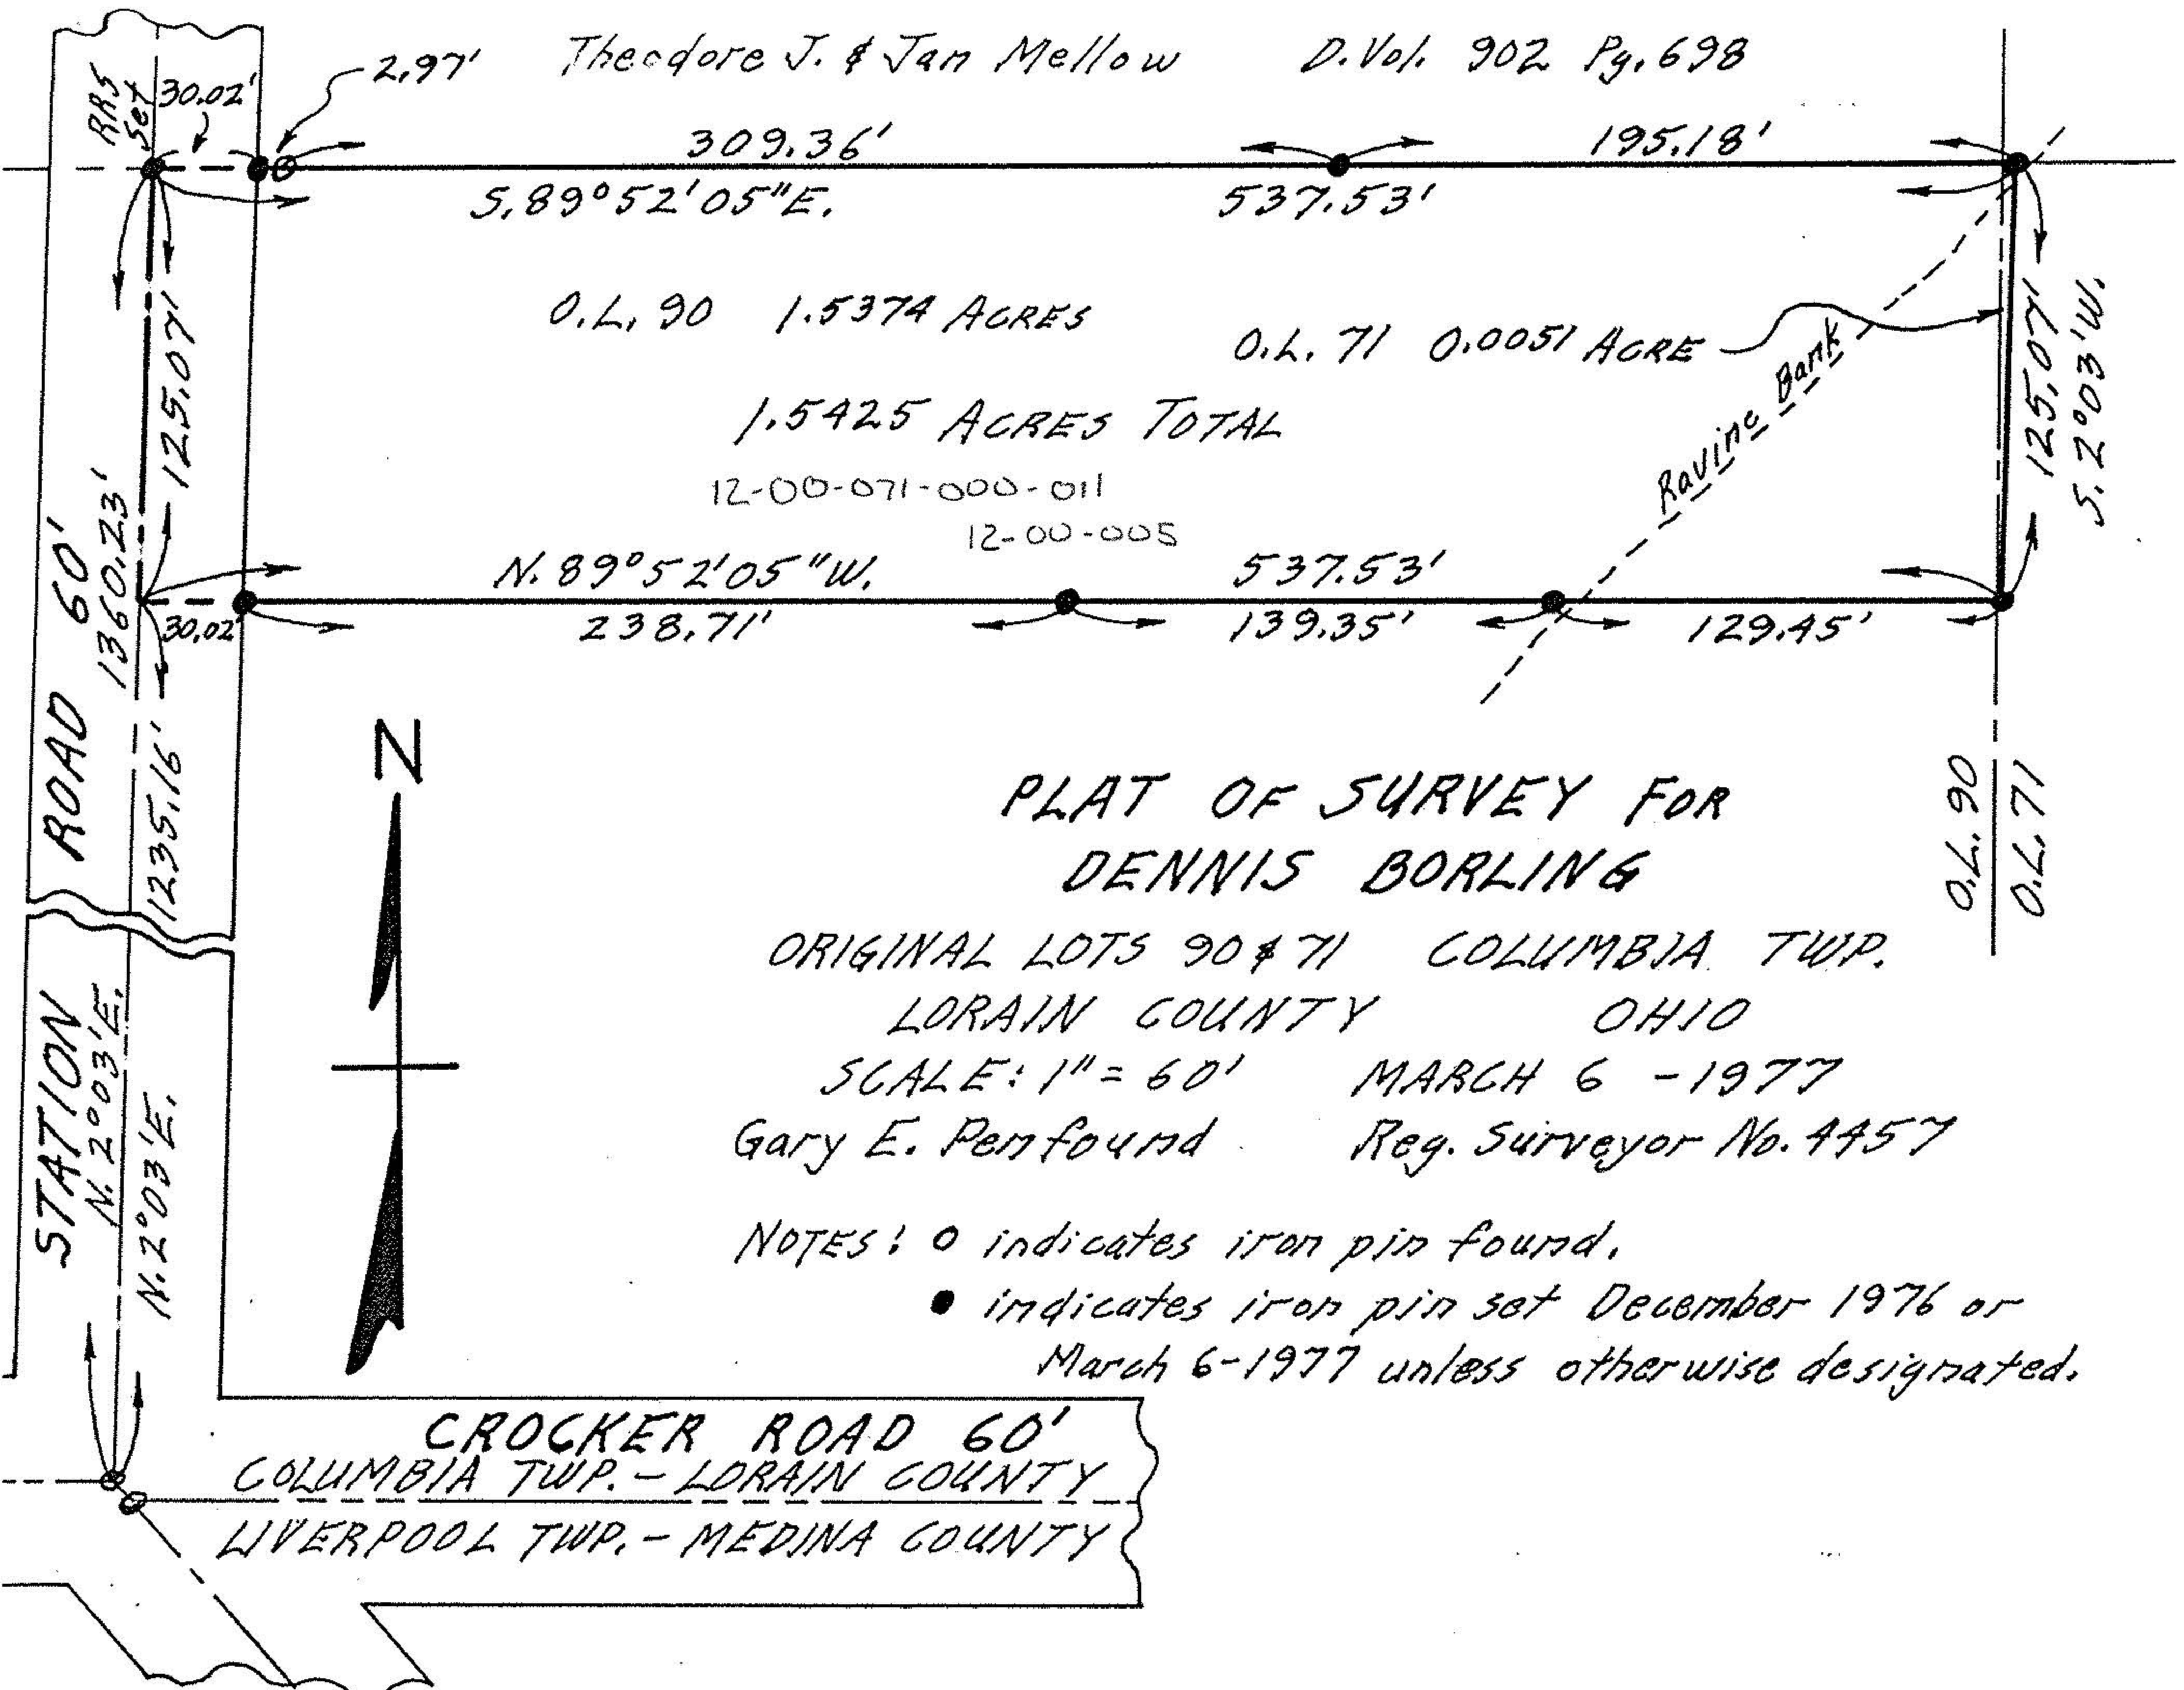 2.97' Theodore J. & Jan Mellow D.Vol. 902 Pg. 698
RRS
Set
30.02'
309.36' 195.18'
S.89°52'05"E. 537.53'
O.L. 90 1.5374 ACRES
O.L. 71 0.0051 ACRE
1.5425 ACRES TOTAL
12-00-071-000-011
12-00-005
Ravine Bank
125.07'
S.2°03'W.
125.07'
N.89°52'05"W. 537.53'
30.02' 238.71' 139.35' 129.45'
STATION ROAD 60'
1360.23'
1235.16'
N.2°03'E.
N.2°03'E.
N
O.L. 90
O.L. 71
PLAT OF SURVEY FOR
DENNIS BORLING
ORIGINAL LOTS 90 & 71 COLUMBIA TWP.
LORAIN COUNTY OHIO
SCALE: 1" = 60' MARCH 6 - 1977
Gary E. Penfound Reg. Surveyor No. 4457
NOTES: o indicates iron pin found.
● indicates iron pin set December 1976 or
March 6-1977 unless otherwise designated.
CROCKER ROAD 60'
COLUMBIA TWP. - LORAIN COUNTY
LIVERPOOL TWP. - MEDINA COUNTY